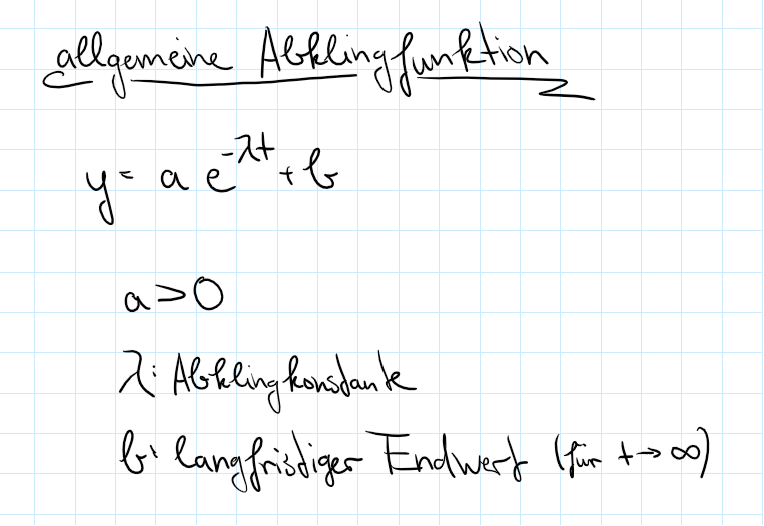 allgemeine Abklingfunktion
y = a e^{-λt} + b
a > 0
λ: Abklingkonstante
b: langfristiger Endwert (für t → ∞)